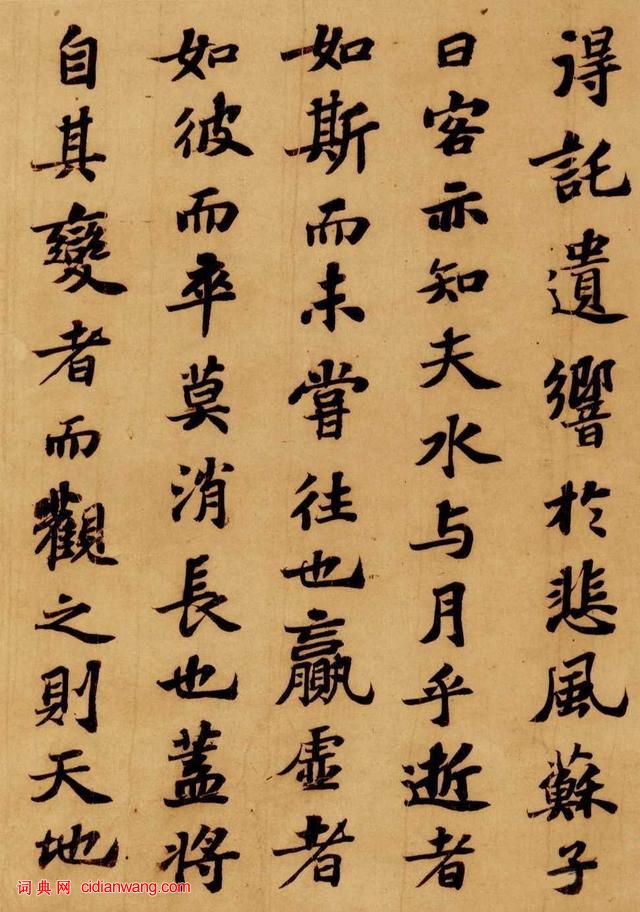 得託遺響於悲風蘇子
曰客亦知夫水与月乎逝者
如斯而未嘗往也贏虛者
如彼而卒莫消長也蓋將
自其變者而觀之則天地
词典网 cidianwang.com